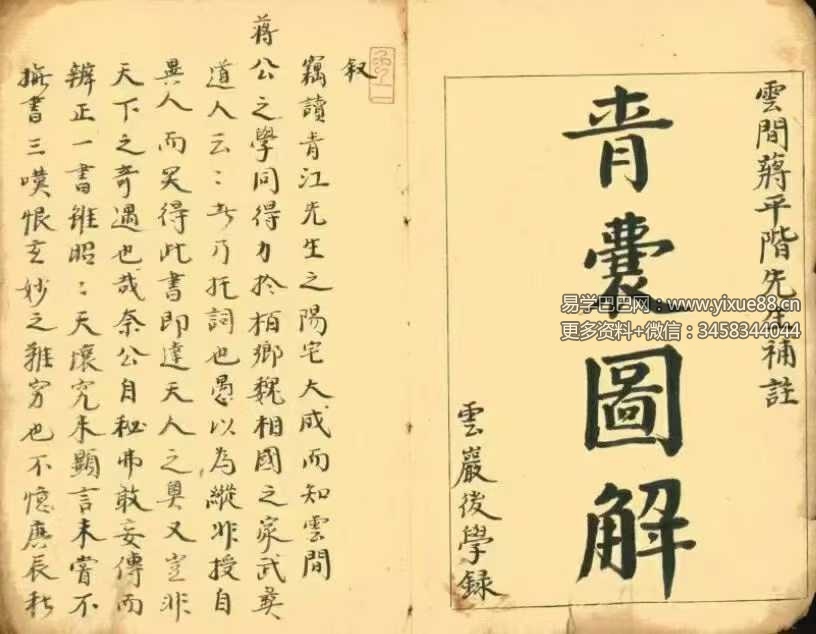 雲間蔣平階先生補註
青囊圖解
雲巖後學錄
易学巴巴网：www.yixue88.cn
更多资料+微信：3458344044
叙
竊讀青江先生之陽宅大成而知雲間
蔣公之學同得力於栢鄉魏相國之家武夷
道人云〻者乃托詞也愚以為縱非授自
異人而得此書即達天人之奧又豈非
天下之奇遇也哉奈公自秘弗敢妄傳而
辨正一書雖昭〻天壤究未顯言未嘗不
撫書三嘆恨玄妙之難窮也不憶庚辰秋